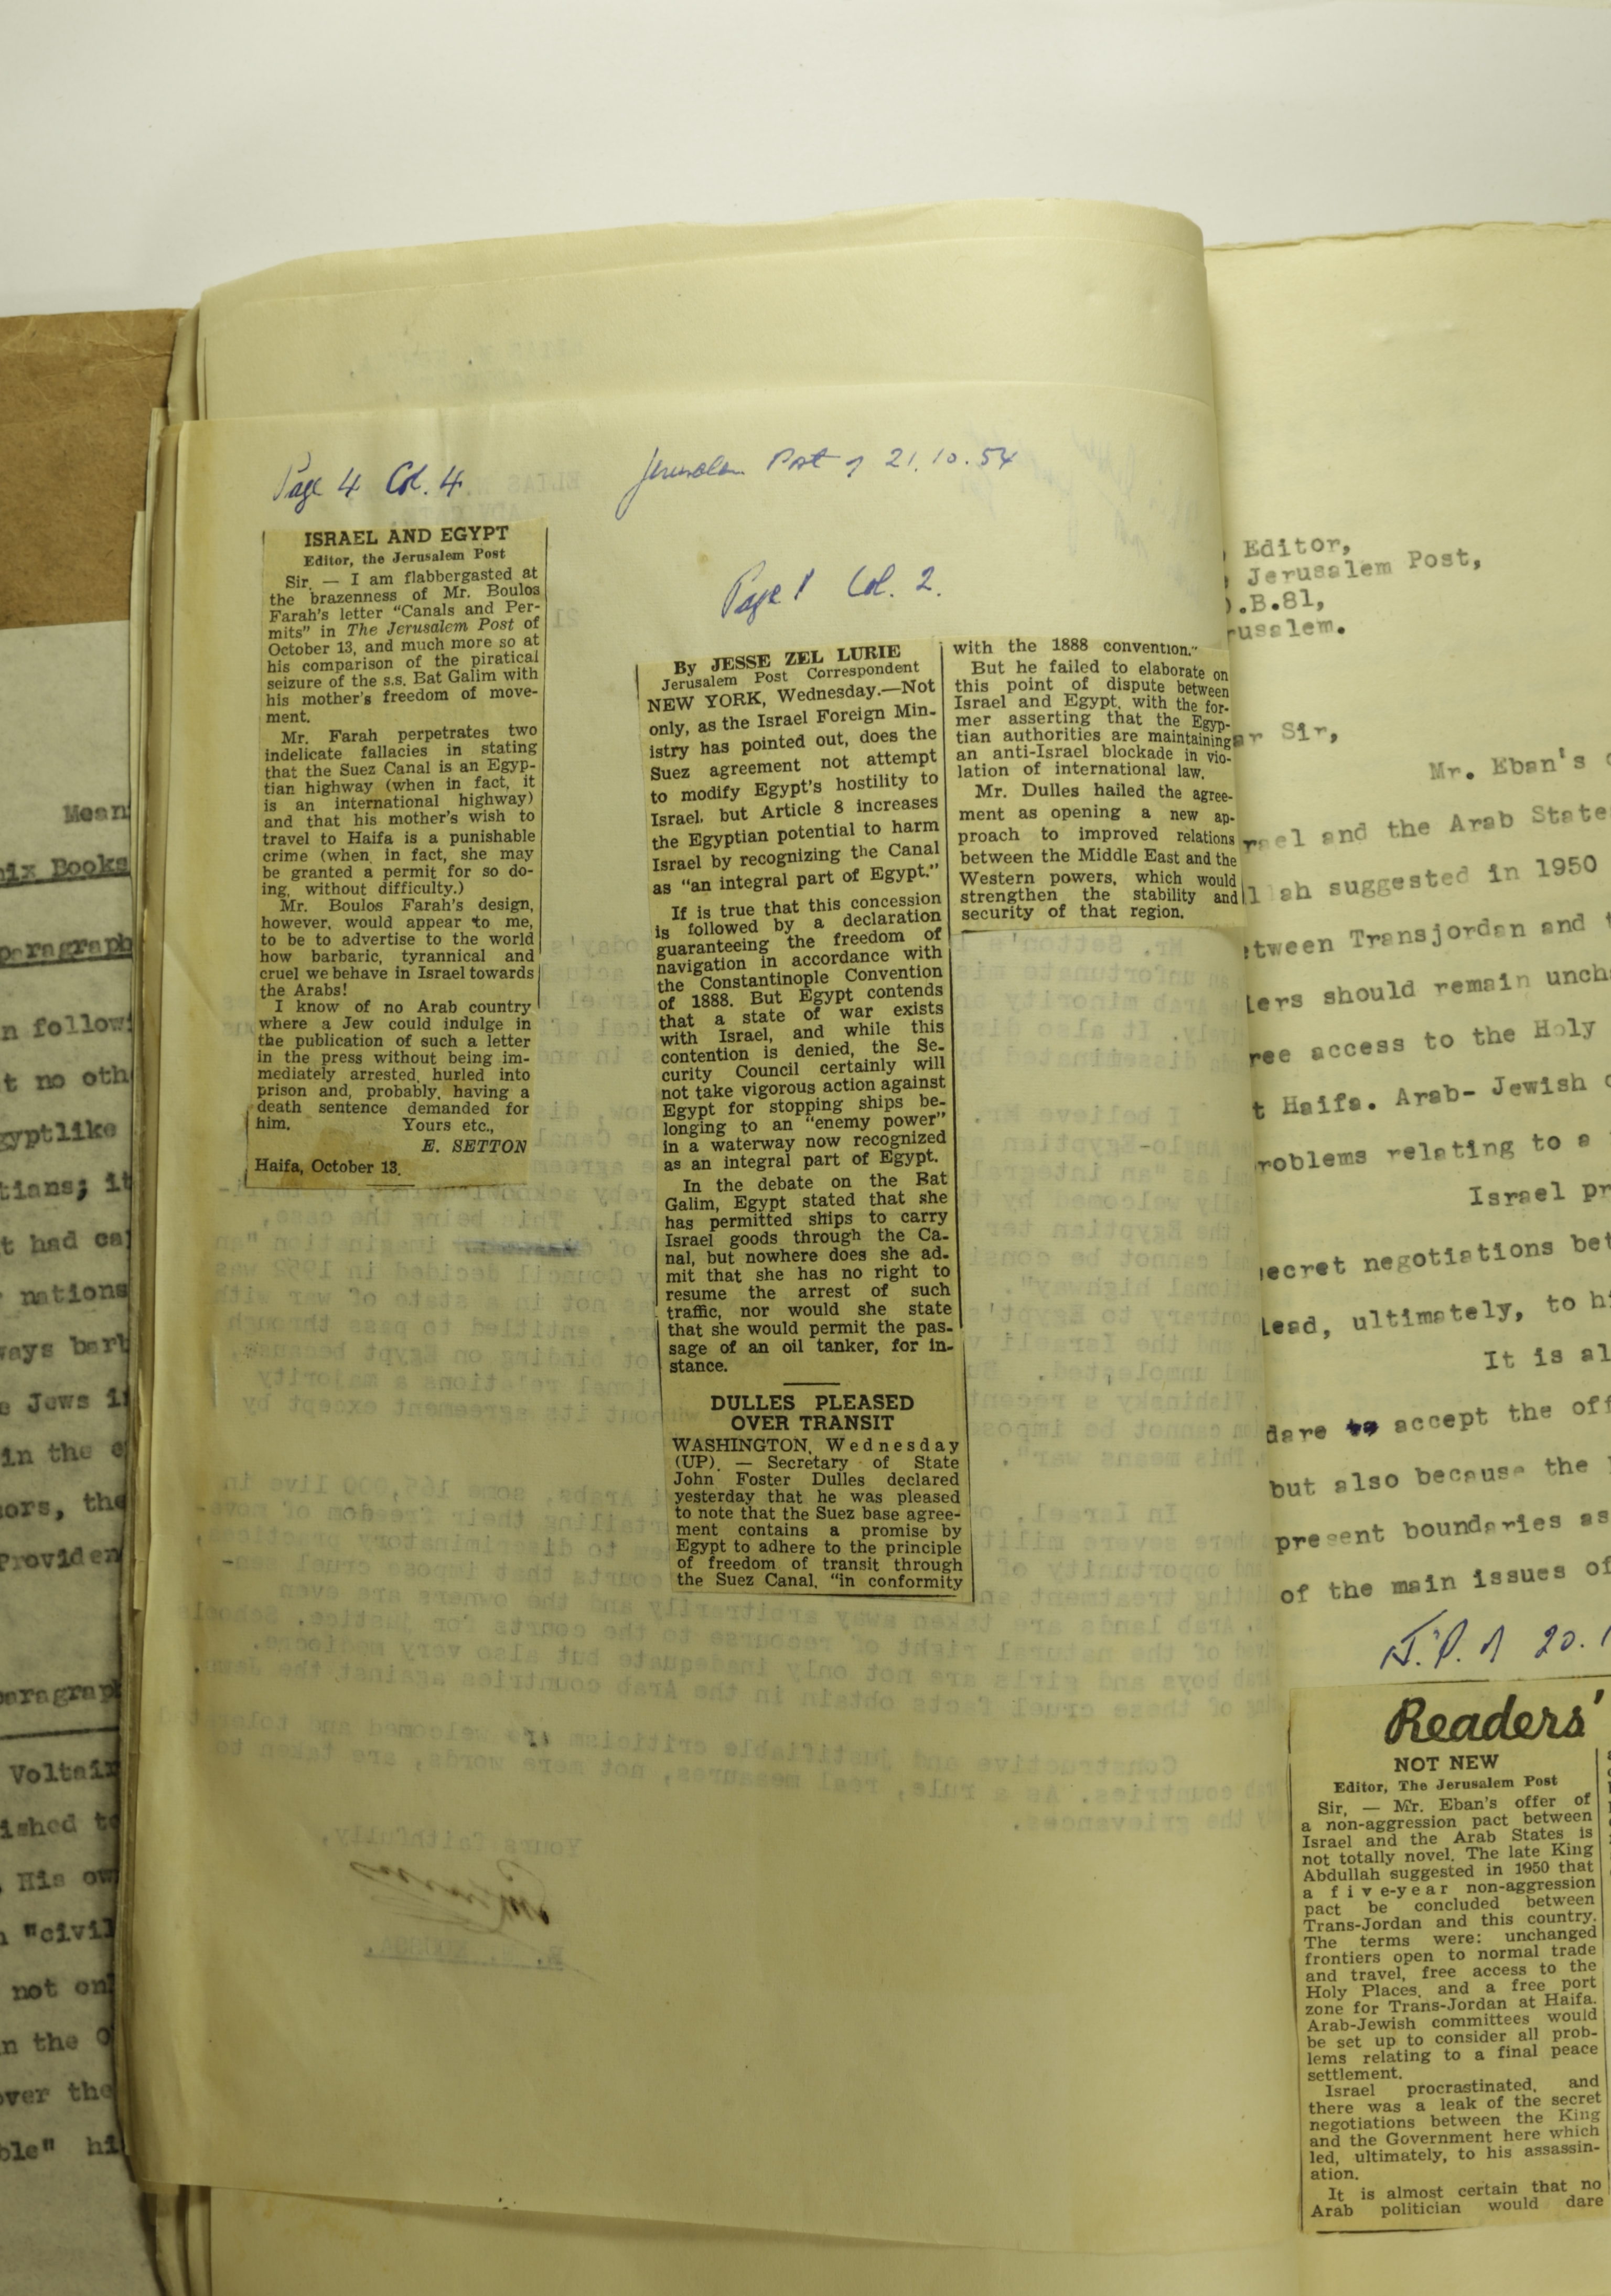 Mean
nix Books
paragraph
n follow
t no oth
gyptlike
tians; it
t had ca
nations
ways barb
e Jews i
in the
ors, the
Providen
paragrap
Voltair
ished to
His ow
"civil
not on
n the
over the
ble" hi
Page 4 Col. 4
Jerusalem Post of 21.10.54
ISRAEL AND EGYPT
Editor, the Jerusalem Post
Sir. — I am flabbergasted at
the brazenness of Mr. Boulos
Farah's letter "Canals and Per-
mits" in The Jerusalem Post of
October 13, and much more so at
his comparison of the piratical
seizure of the s.s. Bat Galim with
his mother's freedom of move-
ment.
Mr. Farah perpetrates two
indelicate fallacies in stating
that the Suez Canal is an Egyp-
tian highway (when in fact, it
is an international highway)
and that his mother's wish to
travel to Haifa is a punishable
crime (when, in fact, she may
be granted a permit for so do-
ing, without difficulty.)
Mr. Boulos Farah's design,
however, would appear to me,
to be to advertise to the world
how barbaric, tyrannical and
cruel we behave in Israel towards
the Arabs!
I know of no Arab country
where a Jew could indulge in
the publication of such a letter
in the press without being im-
mediately arrested, hurled into
prison and, probably, having a
death sentence demanded for
him. Yours etc.,
E. SETTON
Haifa, October 13.
Page 1 Col. 2.
By JESSE ZEL LURIE
Jerusalem Post Correspondent
NEW YORK, Wednesday.—Not
only, as the Israel Foreign Min-
istry has pointed out, does the
Suez agreement not attempt
to modify Egypt's hostility to
Israel, but Article 8 increases
the Egyptian potential to harm
Israel by recognizing the Canal
as "an integral part of Egypt."
If is true that this concession
is followed by a declaration
guaranteeing the freedom of
navigation in accordance with
the Constantinople Convention
of 1888. But Egypt contends
that a state of war exists
with Israel, and while this
contention is denied, the Se-
curity Council certainly will
not take vigorous action against
Egypt for stopping ships be-
longing to an "enemy power"
in a waterway now recognized
as an integral part of Egypt.
In the debate on the Bat
Galim, Egypt stated that she
has permitted ships to carry
Israel goods through the Ca-
nal, but nowhere does she ad-
mit that she has no right to
resume the arrest of such
traffic, nor would she state
that she would permit the pas-
sage of an oil tanker, for in-
stance.
DULLES PLEASED
OVER TRANSIT
WASHINGTON, Wednesday
(UP). — Secretary of State
John Foster Dulles declared
yesterday that he was pleased
to note that the Suez base agree-
ment contains a promise by
Egypt to adhere to the principle
of freedom of transit through
the Suez Canal, "in conformity
with the 1888 convention."
But he failed to elaborate on
this point of dispute between
Israel and Egypt, with the for-
mer asserting that the Egyp-
tian authorities are maintaining
an anti-Israel blockade in vio-
lation of international law.
Mr. Dulles hailed the agree-
ment as opening a new ap-
proach to improved relations
between the Middle East and the
Western powers, which would
strengthen the stability and
security of that region.
Editor,
Jerusalem Post,
.B.81,
rusalem.
ar Sir,
Mr. Eban's
rael and the Arab State
lah suggested in 1950
tween Transjordan and
ers should remain unch
ree access to the Holy
t Haifa. Arab- Jewish
roblems relating to a
Israel pr
ecret negotiations bet
lead, ultimately, to hi
It is al
dare to accept the off
but also because the
present boundaries as
of the main issues of
J.P. of 20.1
Readers'
NOT NEW
Editor, The Jerusalem Post
Sir, — Mr. Eban's offer of
a non-aggression pact between
Israel and the Arab States is
not totally novel. The late King
Abdullah suggested in 1950 that
a five-year non-aggression
pact be concluded between
Trans-Jordan and this country.
The terms were: unchanged
frontiers open to normal trade
and travel, free access to the
Holy Places, and a free port
zone for Trans-Jordan at Haifa.
Arab-Jewish committees would
be set up to consider all prob-
lems relating to a final peace
settlement.
Israel procrastinated, and
there was a leak of the secret
negotiations between the King
and the Government here which
led, ultimately, to his assassin-
ation.
It is almost certain that no
Arab politician would dare